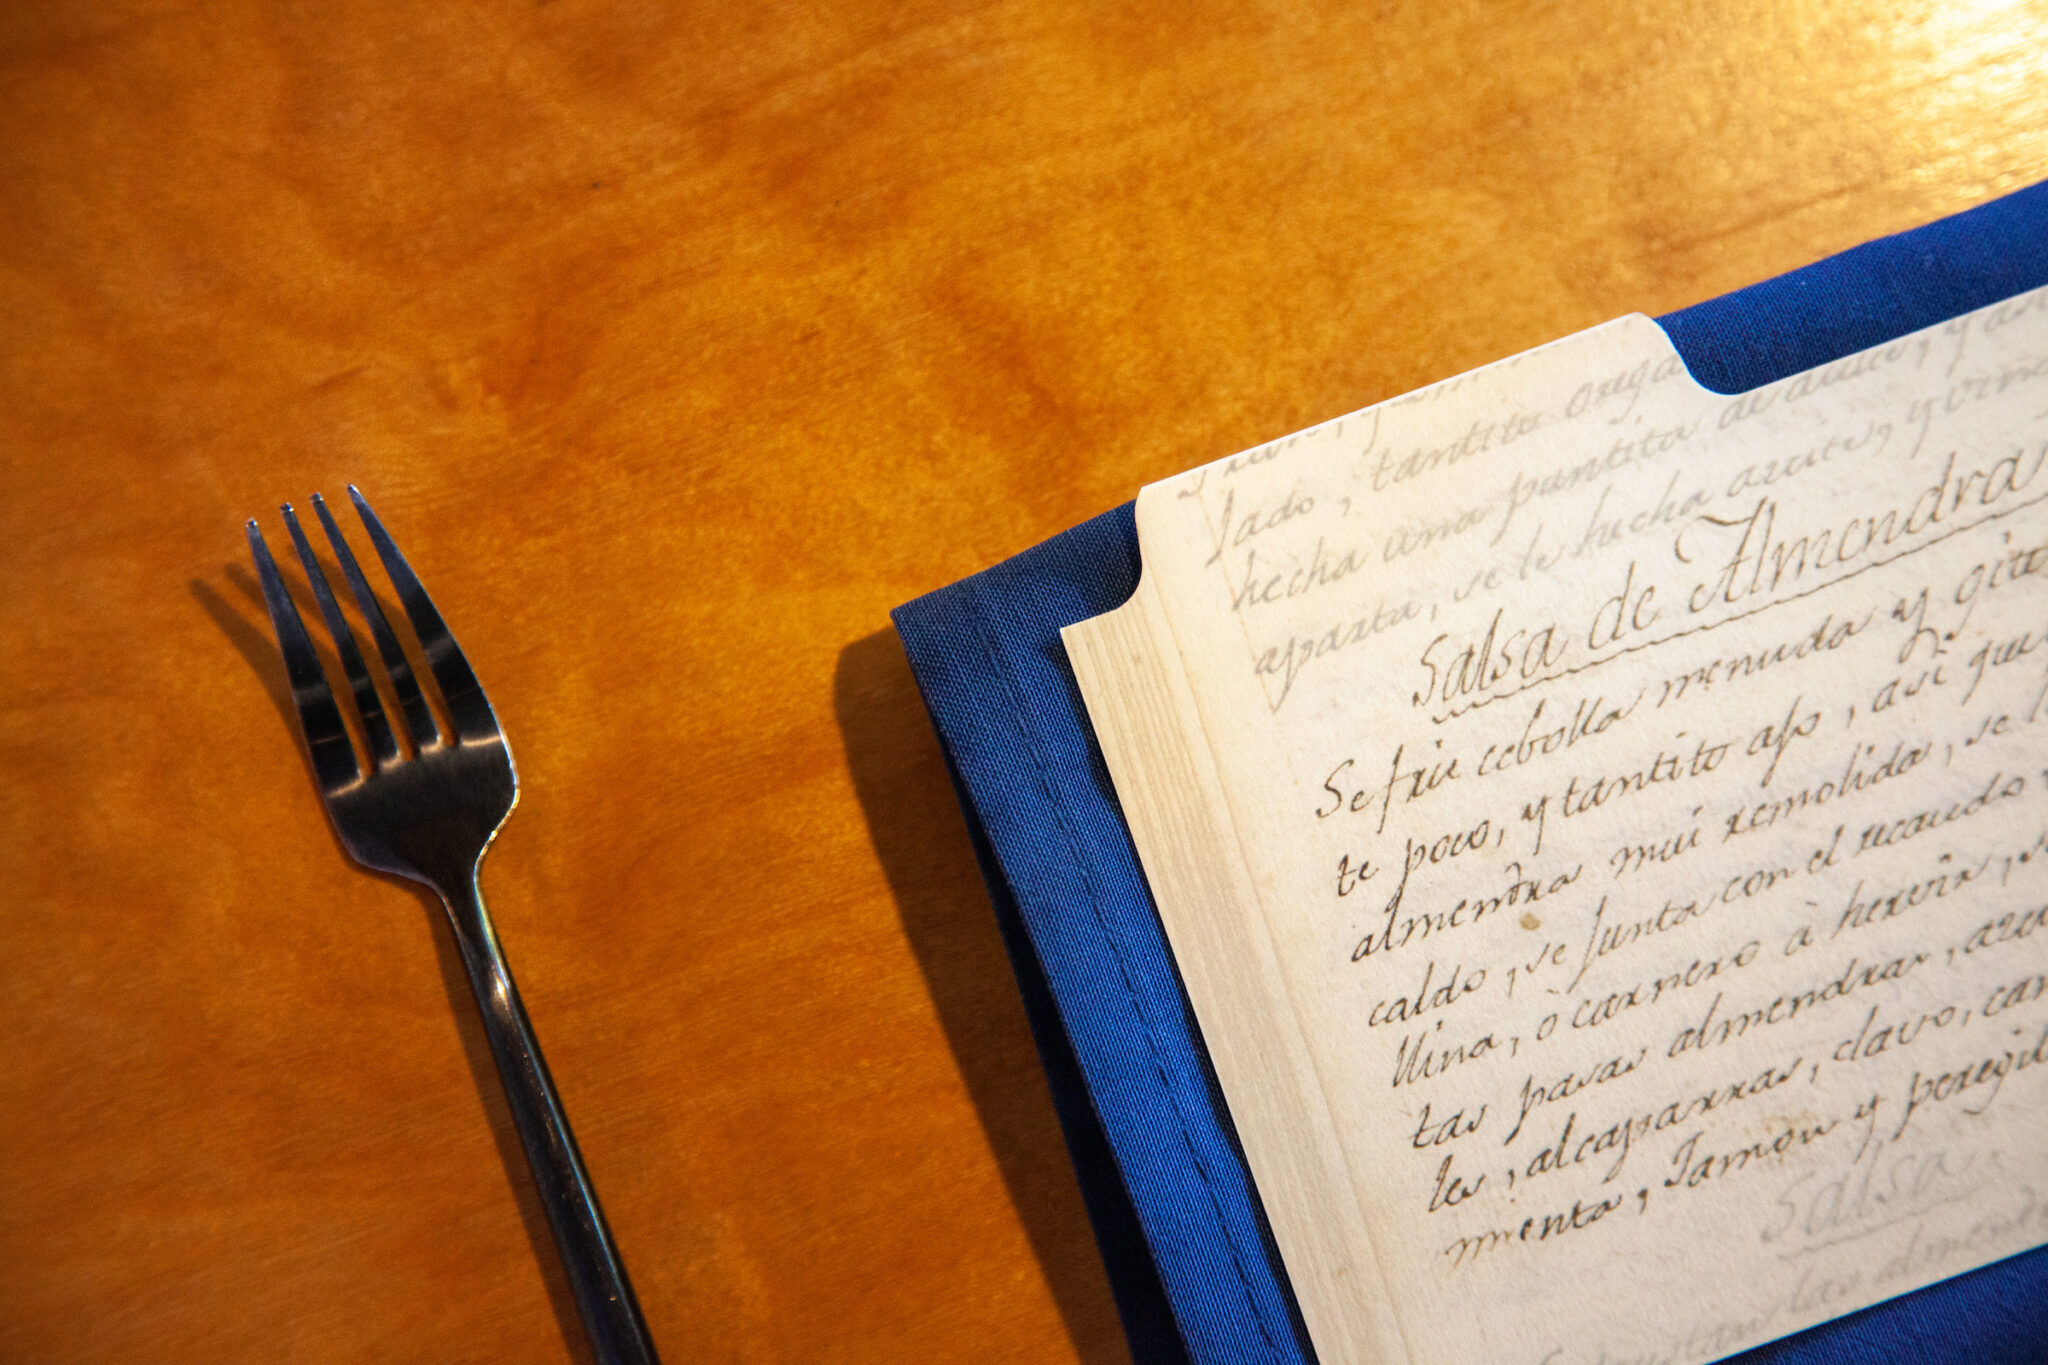 lado, tantito orega
hecha una puntita de anis, y
aparta, se le hecha azeite, y vina
Salsa de Almendra
Se frie cebolla menuda y gito
te poco, y tantito ajo, asi que
almendra mui remolida, se
caldo, se junta con el recaudo
llina, ò carnero à hervir,
tas pasas almendras,
les, alcaparras, clavo, can
mienta, Jamon y peregil
Salsa
las almend